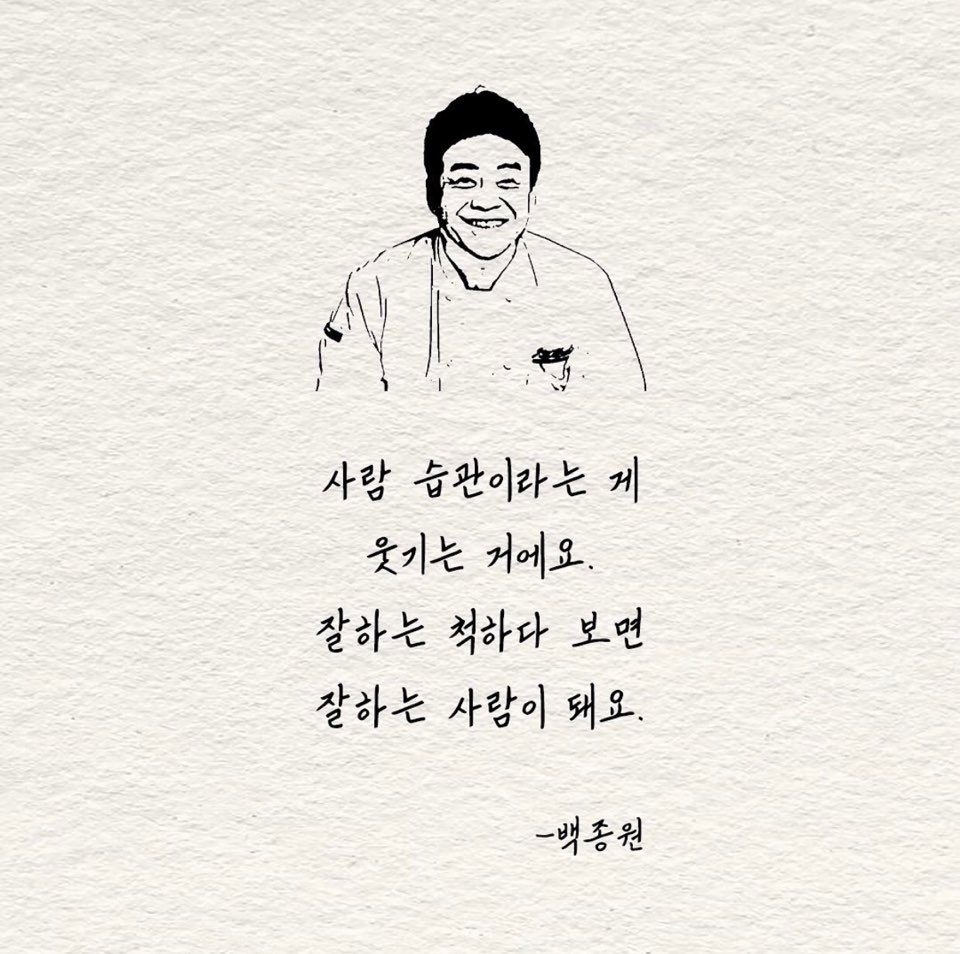 사람 습관이라는 게
웃기는 거에요.
잘하는 척하다 보면
잘하는 사람이 돼요.
-백종원